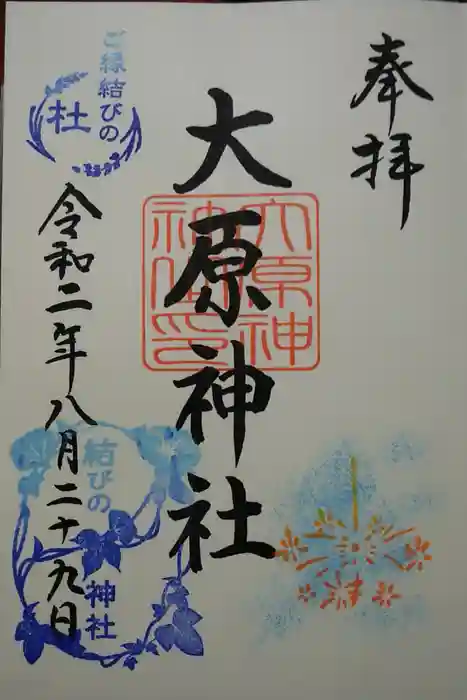 奉拝
大原神社
大原神
社之印
令和二年八月二十九日
ご縁結びの
杜
結びの
神社